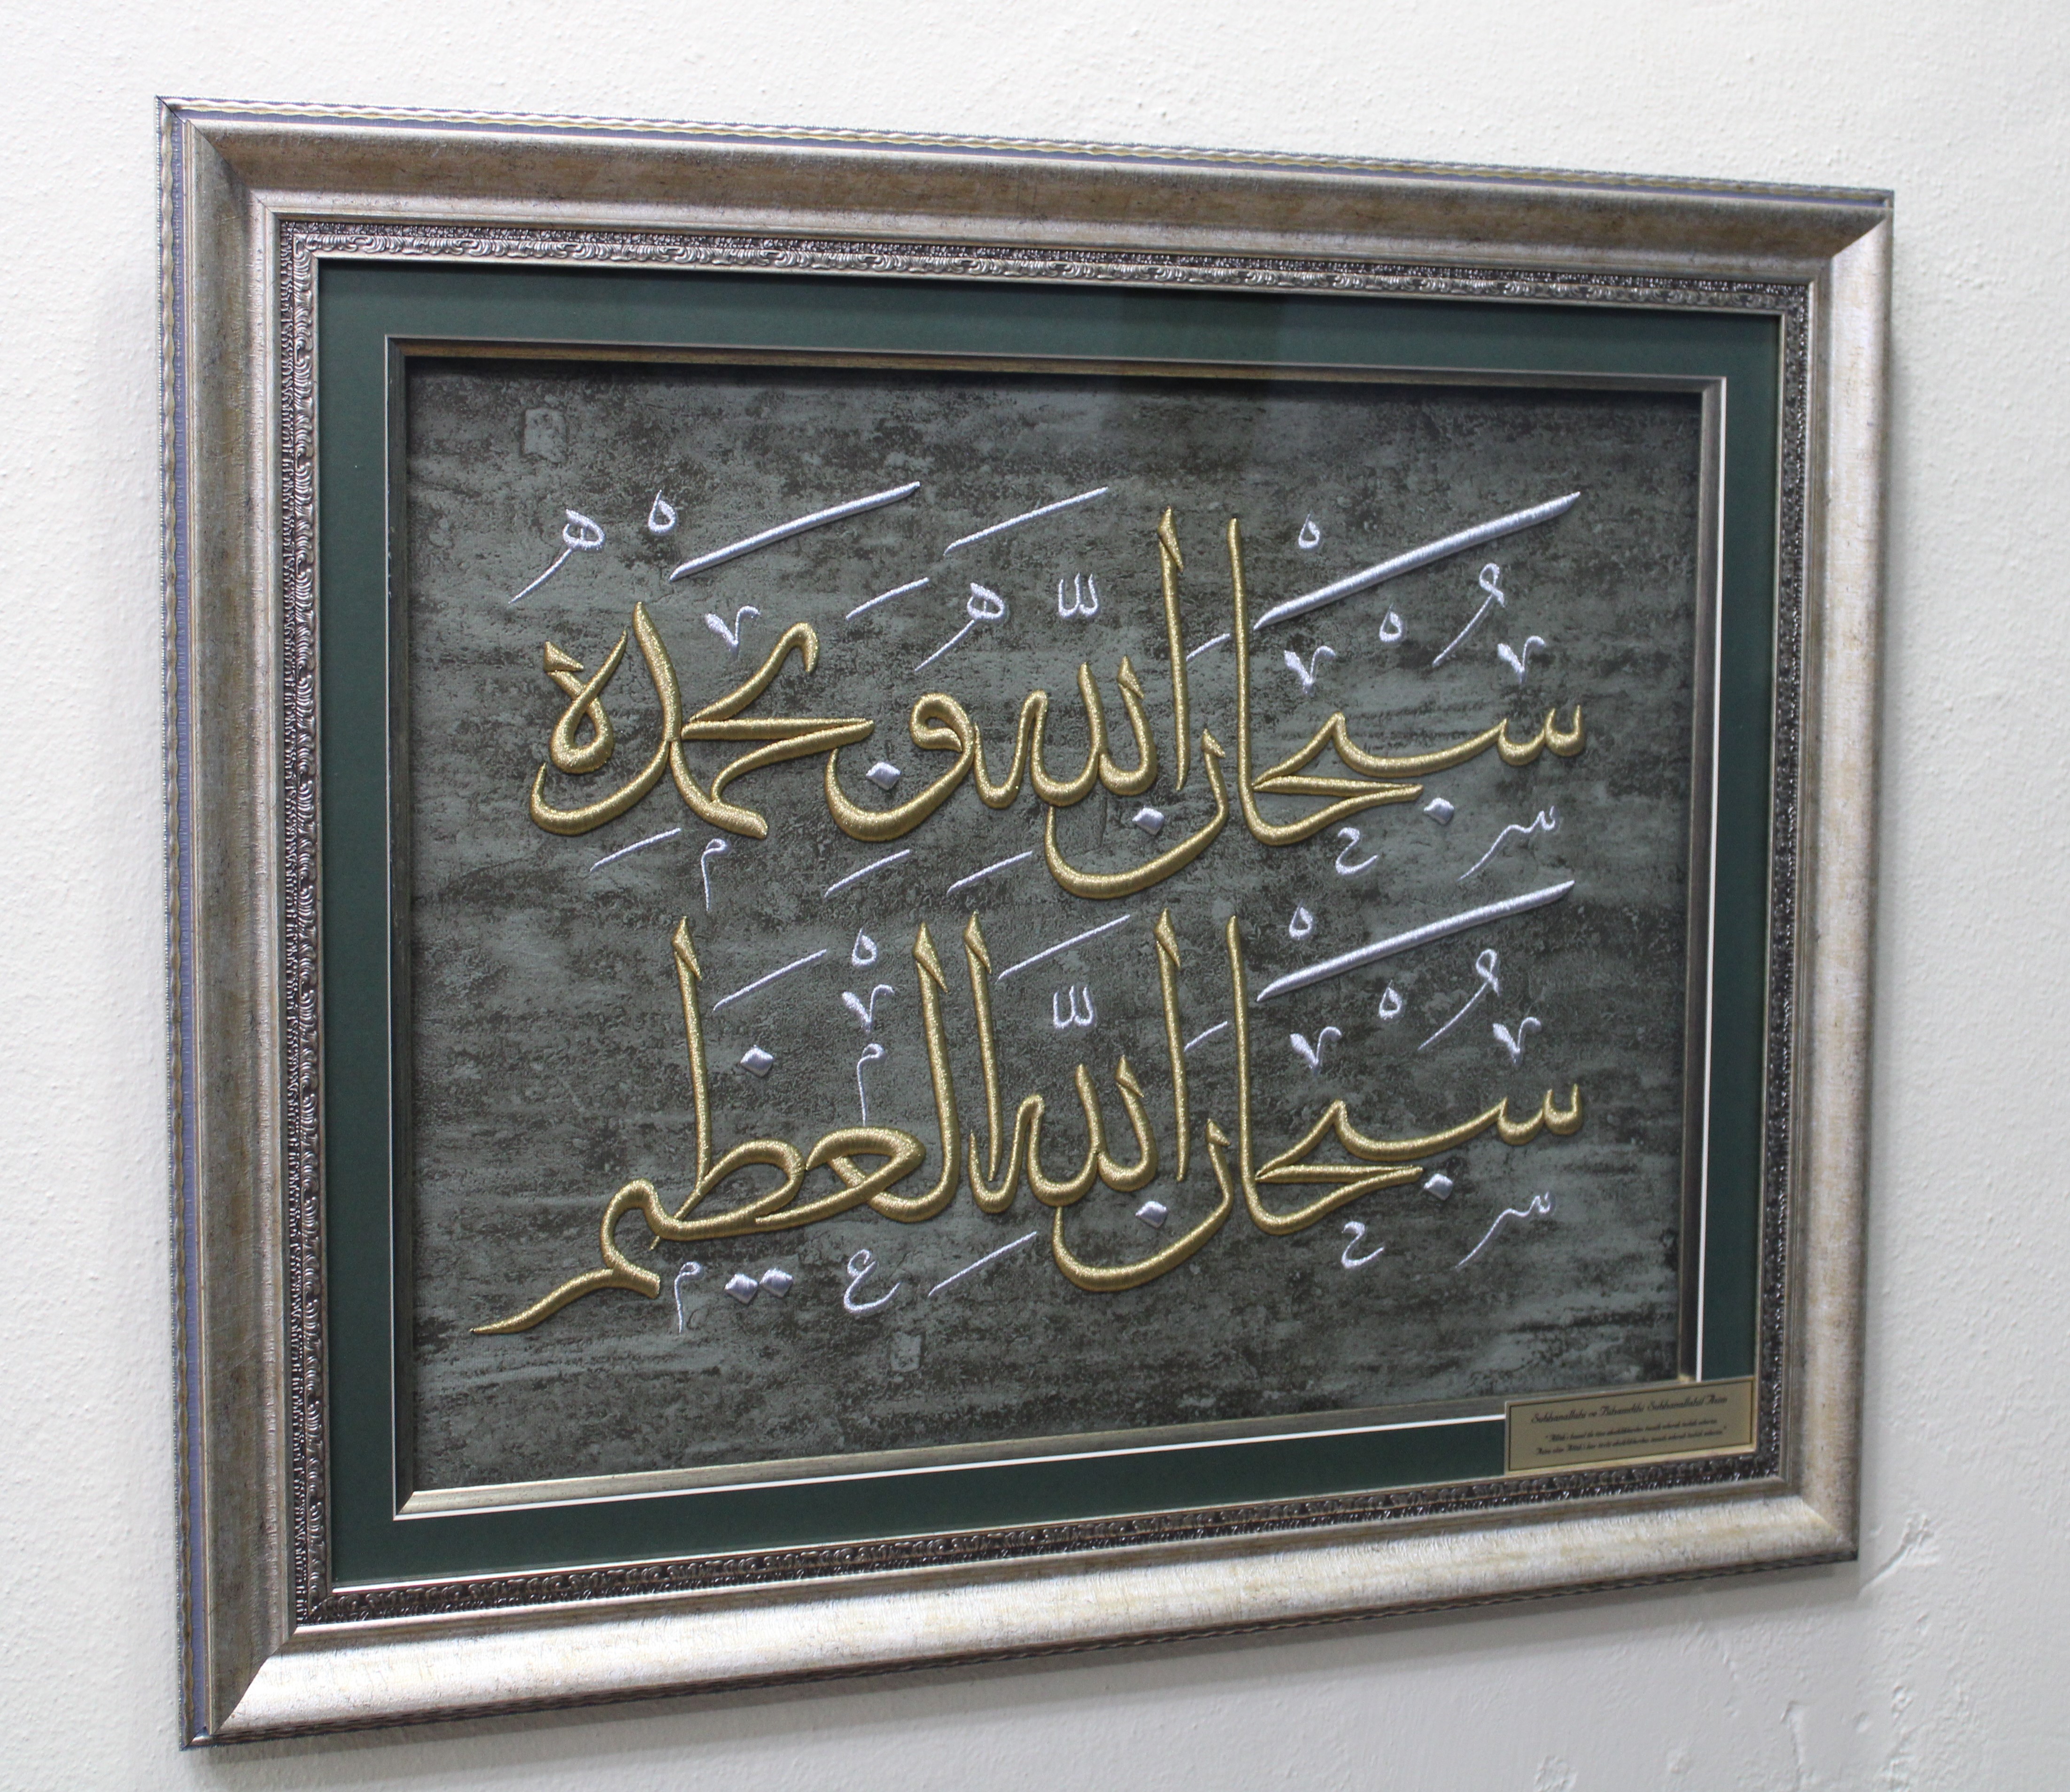 سُبْحَانَ اللّٰهِ وَبِحَمْدِهِ
سُبْحَانَ اللّٰهِ الْعَظِيمِ
Subhanallahi ve Bihamdihi Subhanallahil Azim